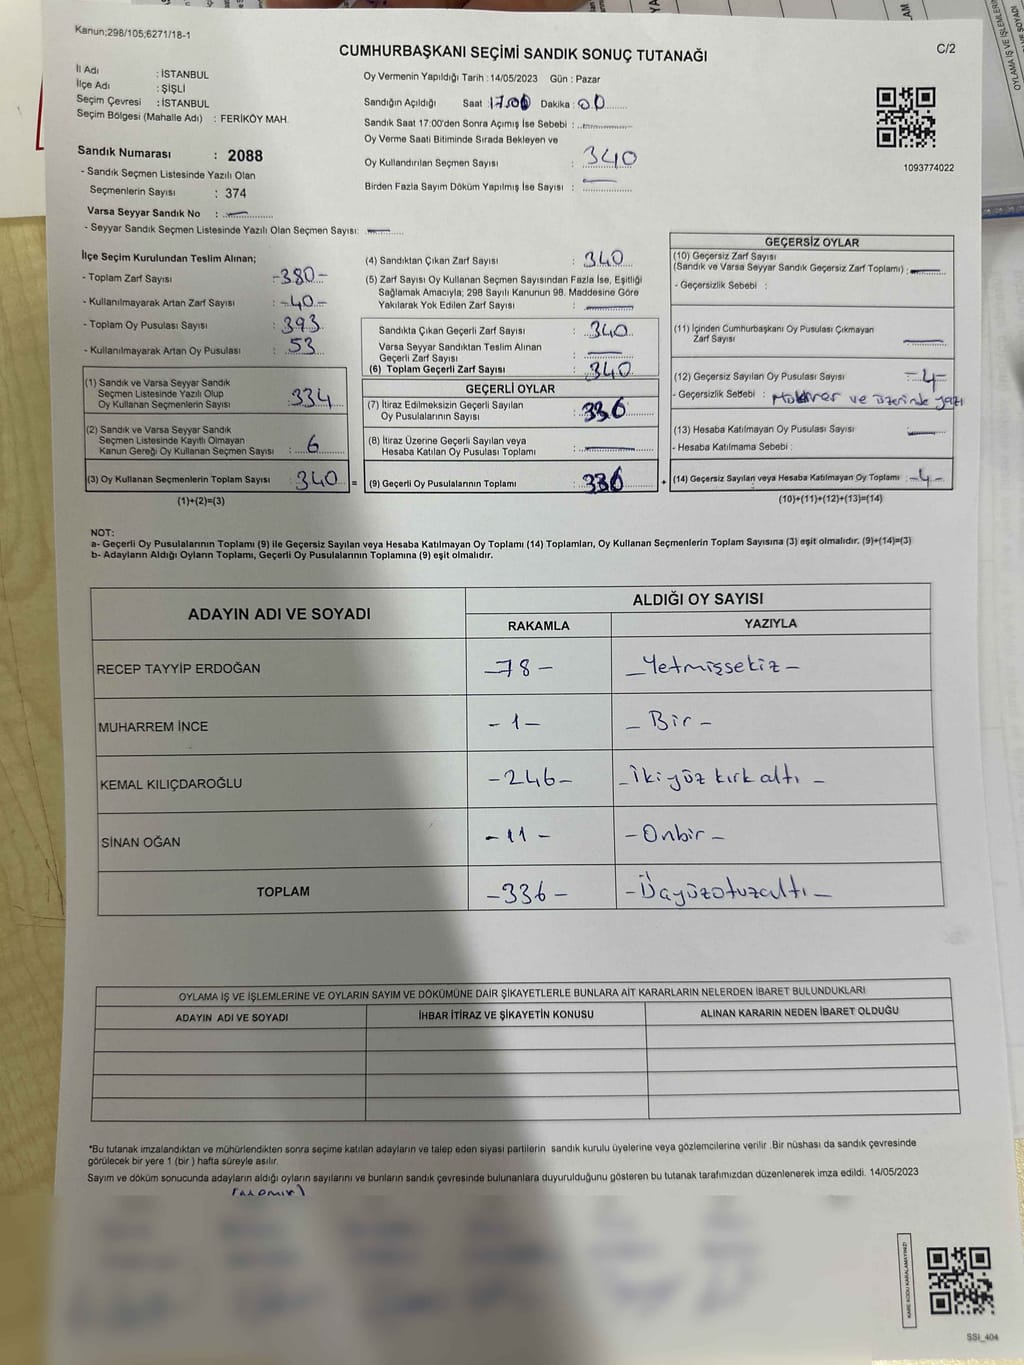 Kanun;298/105;6271/18-1
CUMHURBAŞKANI SEÇİMİ SANDIK SONUÇ TUTANAĞI
C/2
İl Adı : İSTANBUL
İlçe Adı : ŞİŞLİ
Seçim Çevresi : İSTANBUL
Seçim Bölgesi (Mahalle Adı) : FERİKÖY MAH.
Oy Vermenin Yapıldığı Tarih : 14/05/2023 Gün : Pazar
Sandığın Açıldığı Saat : 17.00 Dakika : 00
Sandık Saat 17:00'den Sonra Açımış İse Sebebi :
Oy Verme Saati Bitiminde Sırada Bekleyen ve
Oy Kullandırılan Seçmen Sayısı : 340
Birden Fazla Sayım Döküm Yapılmış İse Sayısı : —
1093774022
Sandık Numarası : 2088
- Sandık Seçmen Listesinde Yazılı Olan
Seçmenlerin Sayısı : 374
Varsa Seyyar Sandık No : —
- Seyyar Sandık Seçmen Listesinde Yazılı Olan Seçmen Sayısı: —
İlçe Seçim Kurulundan Teslim Alınan;
- Toplam Zarf Sayısı : -380-
- Kullanılmayarak Artan Zarf Sayısı : -40-
- Toplam Oy Pusulası Sayısı : 393
- Kullanılmayarak Artan Oy Pusulası : 53
(1) Sandık ve Varsa Seyyar Sandık
Seçmen Listesinde Yazılı Olup
Oy Kullanan Seçmenlerin Sayısı : 334
(2) Sandık ve Varsa Seyyar Sandık
Seçmen Listesinde Kayıtlı Olmayan
Kanun Gereği Oy Kullanan Seçmen Sayısı : 6
(3) Oy Kullanan Seçmenlerin Toplam Sayısı 340 =
(1)+(2)=(3)
(4) Sandıktan Çıkan Zarf Sayısı : 340
(5) Zarf Sayısı Oy Kullanan Seçmen Sayısından Fazla İse, Eşitliği
Sağlamak Amacıyla; 298 Sayılı Kanunun 98. Maddesine Göre
Yakılarak Yok Edilen Zarf Sayısı : —
Sandıkta Çıkan Geçerli Zarf Sayısı : 340
Varsa Seyyar Sandıktan Teslim Alınan
Geçerli Zarf Sayısı : —
(6) Toplam Geçerli Zarf Sayısı : 340
GEÇERLİ OYLAR
(7) İtiraz Edilmeksizin Geçerli Sayılan
Oy Pusulalarının Sayısı : 336
(8) İtiraz Üzerine Geçerli Sayılan veya
Hesaba Katılan Oy Pusulası Toplamı : —
(9) Geçerli Oy Pusulalarının Toplamı : 336 +
GEÇERSİZ OYLAR
(10) Geçersiz Zarf Sayısı
(Sandık ve Varsa Seyyar Sandık Geçersiz Zarf Toplamı) : —
- Geçersizlik Sebebi :
(11) İçinden Cumhurbaşkanı Oy Pusulası Çıkmayan
Zarf Sayısı —
(12) Geçersiz Sayılan Oy Pusulası Sayısı -4-
- Geçersizlik Sebebi : ve üzerinde yazı
(13) Hesaba Katılmayan Oy Pusulası Sayısı —
- Hesaba Katılmama Sebebi :
(14) Geçersiz Sayılan veya Hesaba Katılmayan Oy Toplamı : -4-
(10)+(11)+(12)+(13)=(14)
NOT:
a- Geçerli Oy Pusulalarının Toplamı (9) ile Geçersiz Sayılan veya Hesaba Katılmayan Oy Toplamı (14) Toplamları, Oy Kullanan Seçmenlerin Toplam Sayısına (3) eşit olmalıdır. (9)+(14)=(3)
b- Adayların Aldığı Oyların Toplamı, Geçerli Oy Pusulalarının Toplamına (9) eşit olmalıdır.
ADAYIN ADI VE SOYADI
ALDIĞI OY SAYISI
RAKAMLA YAZIYLA
RECEP TAYYİP ERDOĞAN -78- -Yetmişsekiz-
MUHARREM İNCE -1- -Bir-
KEMAL KILIÇDAROĞLU -246- -İkiyüz kırk altı-
SİNAN OĞAN -11- -Onbir-
TOPLAM -336- -Üçyüzotuzaltı-
OYLAMA İŞ VE İŞLEMLERİNE VE OYLARIN SAYIM VE DÖKÜMÜNE DAİR ŞİKAYETLERLE BUNLARA AİT KARARLARIN NELERDEN İBARET BULUNDUKLARI
ADAYIN ADI VE SOYADI İHBAR İTİRAZ VE ŞİKAYETİN KONUSU ALINAN KARARIN NEDEN İBARET OLDUĞU
*Bu tutanak imzalandıktan ve mühürlendikten sonra seçime katılan adayların ve talep eden siyasi partilerin sandık kurulu üyelerine veya gözlemcilerine verilir .Bir nüshası da sandık çevresinde
görülecek bir yere 1 (bir ) hafta süreyle asılır.
Sayım ve döküm sonucunda adayların aldığı oyların sayılarını ve bunların sandık çevresinde bulunanlara duyurulduğunu gösteren bu tutanak tarafımızdan düzenlenerek imza edildi. 14/05/2023
KARE KODU KARALAMAYINIZ!
SSI_404